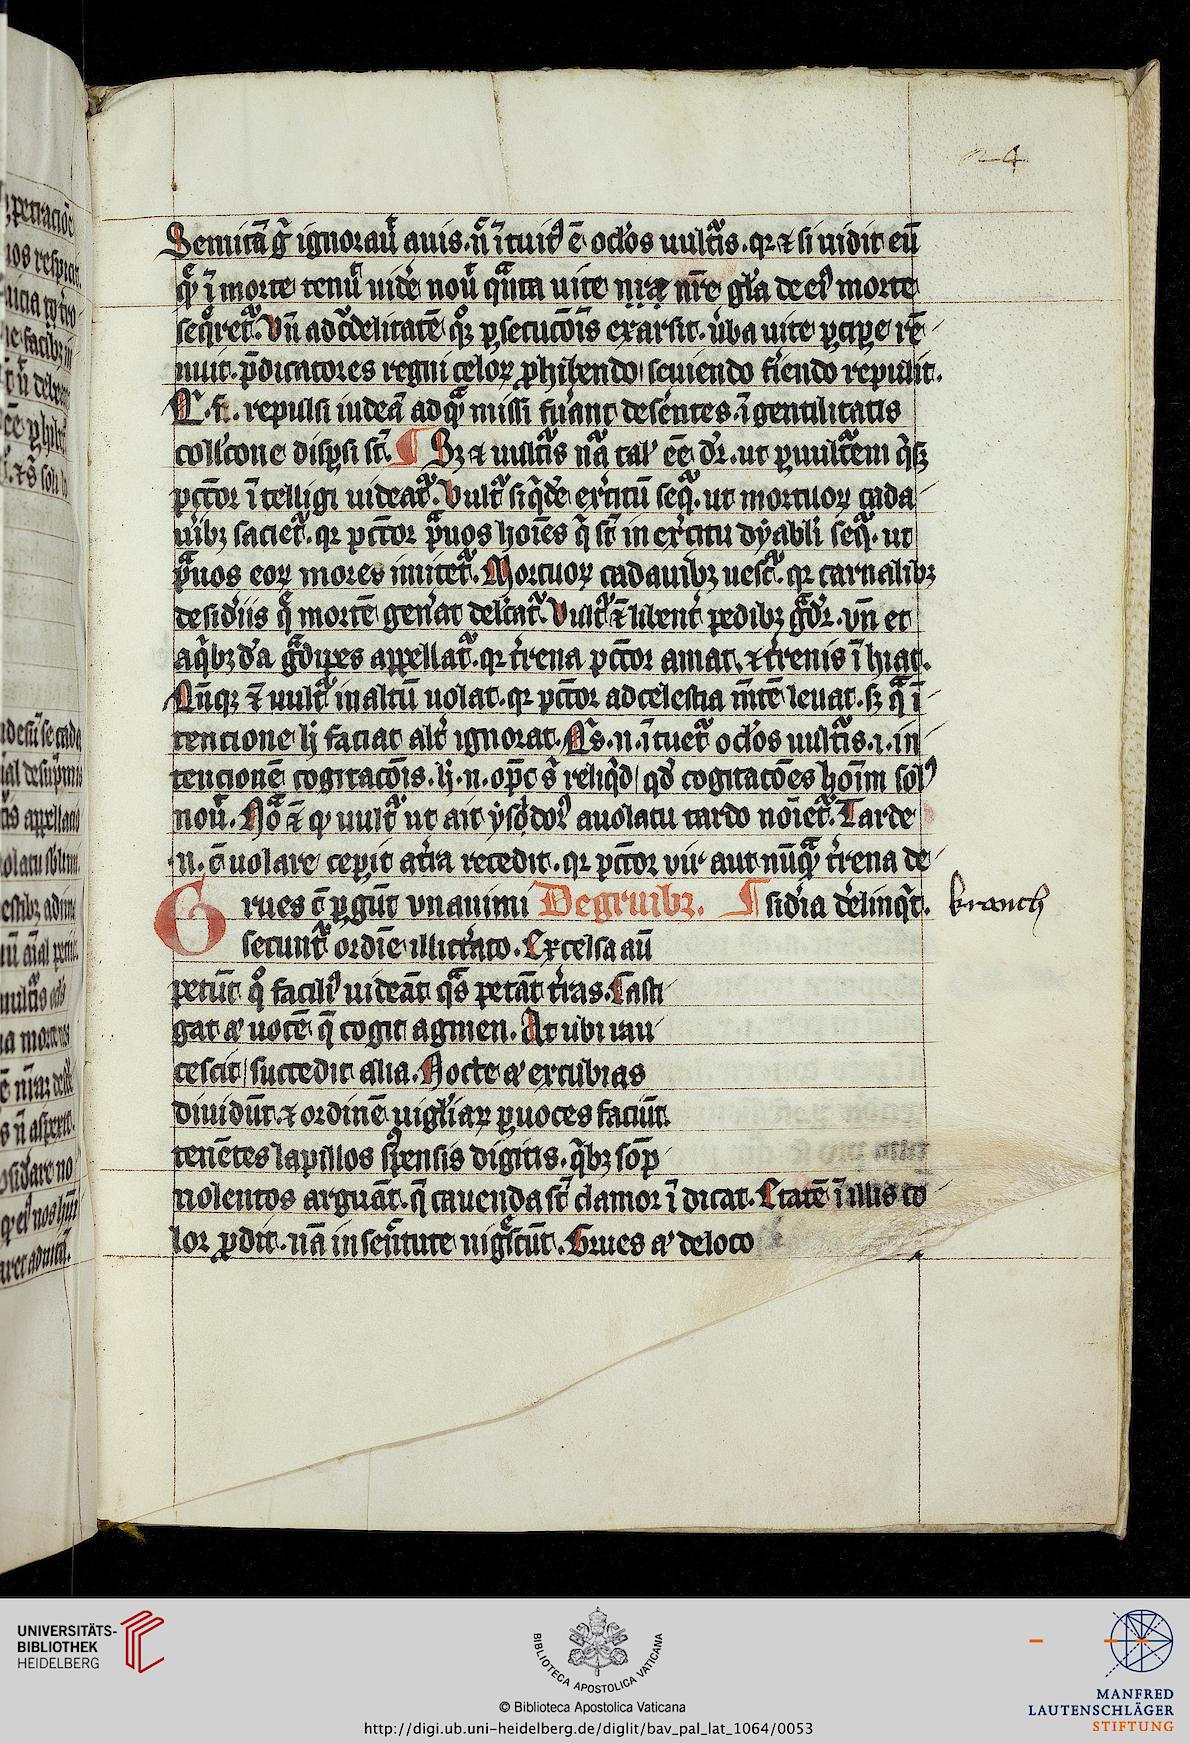 24
Semitā g̊ ignorauͭ auis. n̄ ītuit᷒ ē oclo̓s uult᷑is. qr ⁊ si uidit eū
qͤ ī morte tenuͭ uide̓ nouͭ quͣnta uite nr̄e gla̓ de ei᷒ morte
seqr̓et᷑. Vn̄ ad c̓delitatē qͦꝫ ꝑsecuto̅is exarsit. ūba uite ꝑcipe re̅
nuit. p̄dicatores regni celoꝝ ꝓhibendo seuiendo fi̓endo repulit.
repulsi iudeā ad qͣ missi fu̓ant des̓entes. ī gentilitatis
coll̓cone disꝑsi st̄. ¶ Sꝫ ⁊ uult᷑is nͣ tal᷒ ēē dr̄. ut ꝑ uult᷑em qͥsꝫ
pctōr ītelligi uideat᷑. Vult᷑ siqͥde̅ exc̓itū seq᷑. ut mortuoꝝ cada
ūibꝫ saciet᷑. qr pctōr pͣuos hoīes qͥ st̄ in exc̓itu dyabli seq᷑. ut
pͣuos eoꝝ mores imitet᷑. Mortuoꝝ cadauibꝫ uesc᷑. qr carnalibꝫ
desid̓iis qͤ mortē gen̓at delc̓at᷑. Vult᷑ ē libent᷒ pedibꝫ gͣdr̓. vn̄ et
a qͥbꝫda̅ gͣdipes appellat᷑. qr tr̓ena pctōr amat, ⁊ tr̓enis īhiat.
Nūqꝫ ē uult᷑ in altū uolat. qr pctōr ad celestia mtē̅ leuat. sꝫ qͣ ī
tencione h̓ faciat alt᷒ ignorat. Ns̄. n. ītuet᷑ oclo̓s uult᷑is .i. in
tencionē cogitaco̅is. h̓. n. opc̄ s̓ reliqͥd qd̓ cogitacōes hoīm sol᷒
nouͭ. Noͣ ē qꝫ uult᷑ ut ait ysodor᷒ a uolatu tardo noīet᷑. Tarde
.n. c̄ uolare cepit at̓ra recedit. qr pctōr vix aut nūqͣ tr̓ena de
Grues c̄ ꝑgūt vnanimi De gruibꝫ. ¶ sid̓ia de̓linqͭ.
kranch
secunt᷑ ordīe illitt̓ato. Excelsa aū
petūt qͦ facili᷒ uideāt qͣs petāt tr̓as. Casti
gat ā uocē q̄ cogit agmen. At ubi rau
cescit succedit alia. Nocte ā excubias
diuidūt ⁊ ordinē uigl̓iaꝝ ꝑ uoces faciūt.
tenētes lapillos sꝰpensis digitis. qͥbꝫ som̅p
nolentos arguāt. q̄ cauenda st̄ clamor īdicat. Etatē ī illis co
lor ꝓdit. nā in sen̓ctute nigͤscūt. Grues ā de loco
UNIVERSITÄTS-
BIBLIOTHEK
HEIDELBERG
BIBLIOTECA APOSTOLICA VATICANA
© Biblioteca Apostolica Vaticana
http://digi.ub.uni-heidelberg.de/diglit/bav_pal_lat_1064/0053
MANFRED
LAUTENSCHLÄGER
STIFTUNG